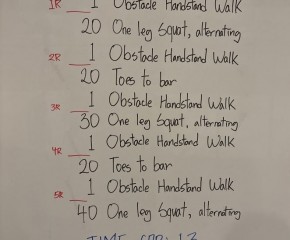 1R 1 Obstacle Handstand Walk
20 One leg Squat, alternating
2R 1 Obstacle Handstand Walk
20 Toes to bar
3R 1 Obstacle Handstand Walk
30 One leg Squat, alternating
4R 1 Obstacle Handstand Walk
20 Toes to bar
5R 1 Obstacle Handstand Walk
40 One leg Squat, alternating
TIME CAP: 13